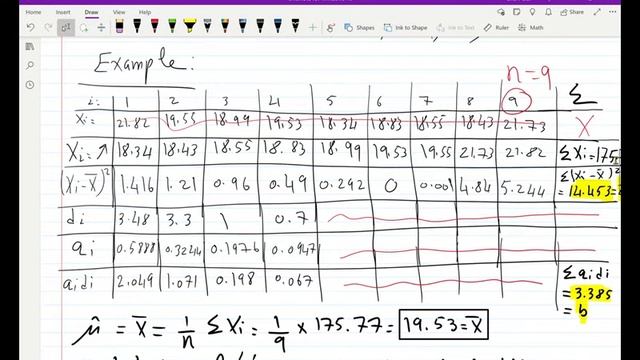 File Home Insert Draw View Help
Shapes Ink to Shape Ink to Text Math Ruler
Example:
n=9
i: 1 2 3 4 5 6 7 8 9 Σ
Xi= 21.82 19.55 18.99 19.53 18.34 18.83 18.55 18.43 21.73 X
Xi=↗ 18.34 18.43 18.55 18.83 18.99 19.53 19.55 21.73 21.82 ΣXi=175
(Xi-X̄)² 1.416 1.21 0.96 0.49 0.292 0 0.001 4.84 5.244 Σ(Xi-X̄)²
=14.453=
di 3.48 3.3 1 0.7
ai 0.5888 0.3244 0.1976 0.0947
aidi 2.049 1.071 0.198 0.067 Σaidi
=3.385
=b
μ̂ = X̄ = 1/n ΣXi = 1/9 × 175.77 = 19.53=X̄